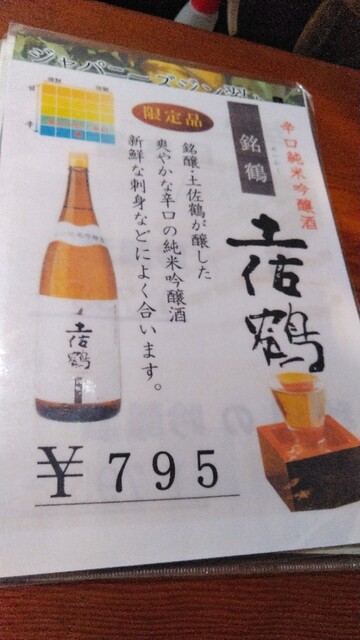 ジャパニーズジン
辛口純米吟醸酒
銘鶴
土佐鶴
限定品
銘醸・土佐鶴が醸した
爽やかな辛口の純米吟醸酒
新鮮な刺身などによく合います。
甘
辛
土佐鶴
¥795